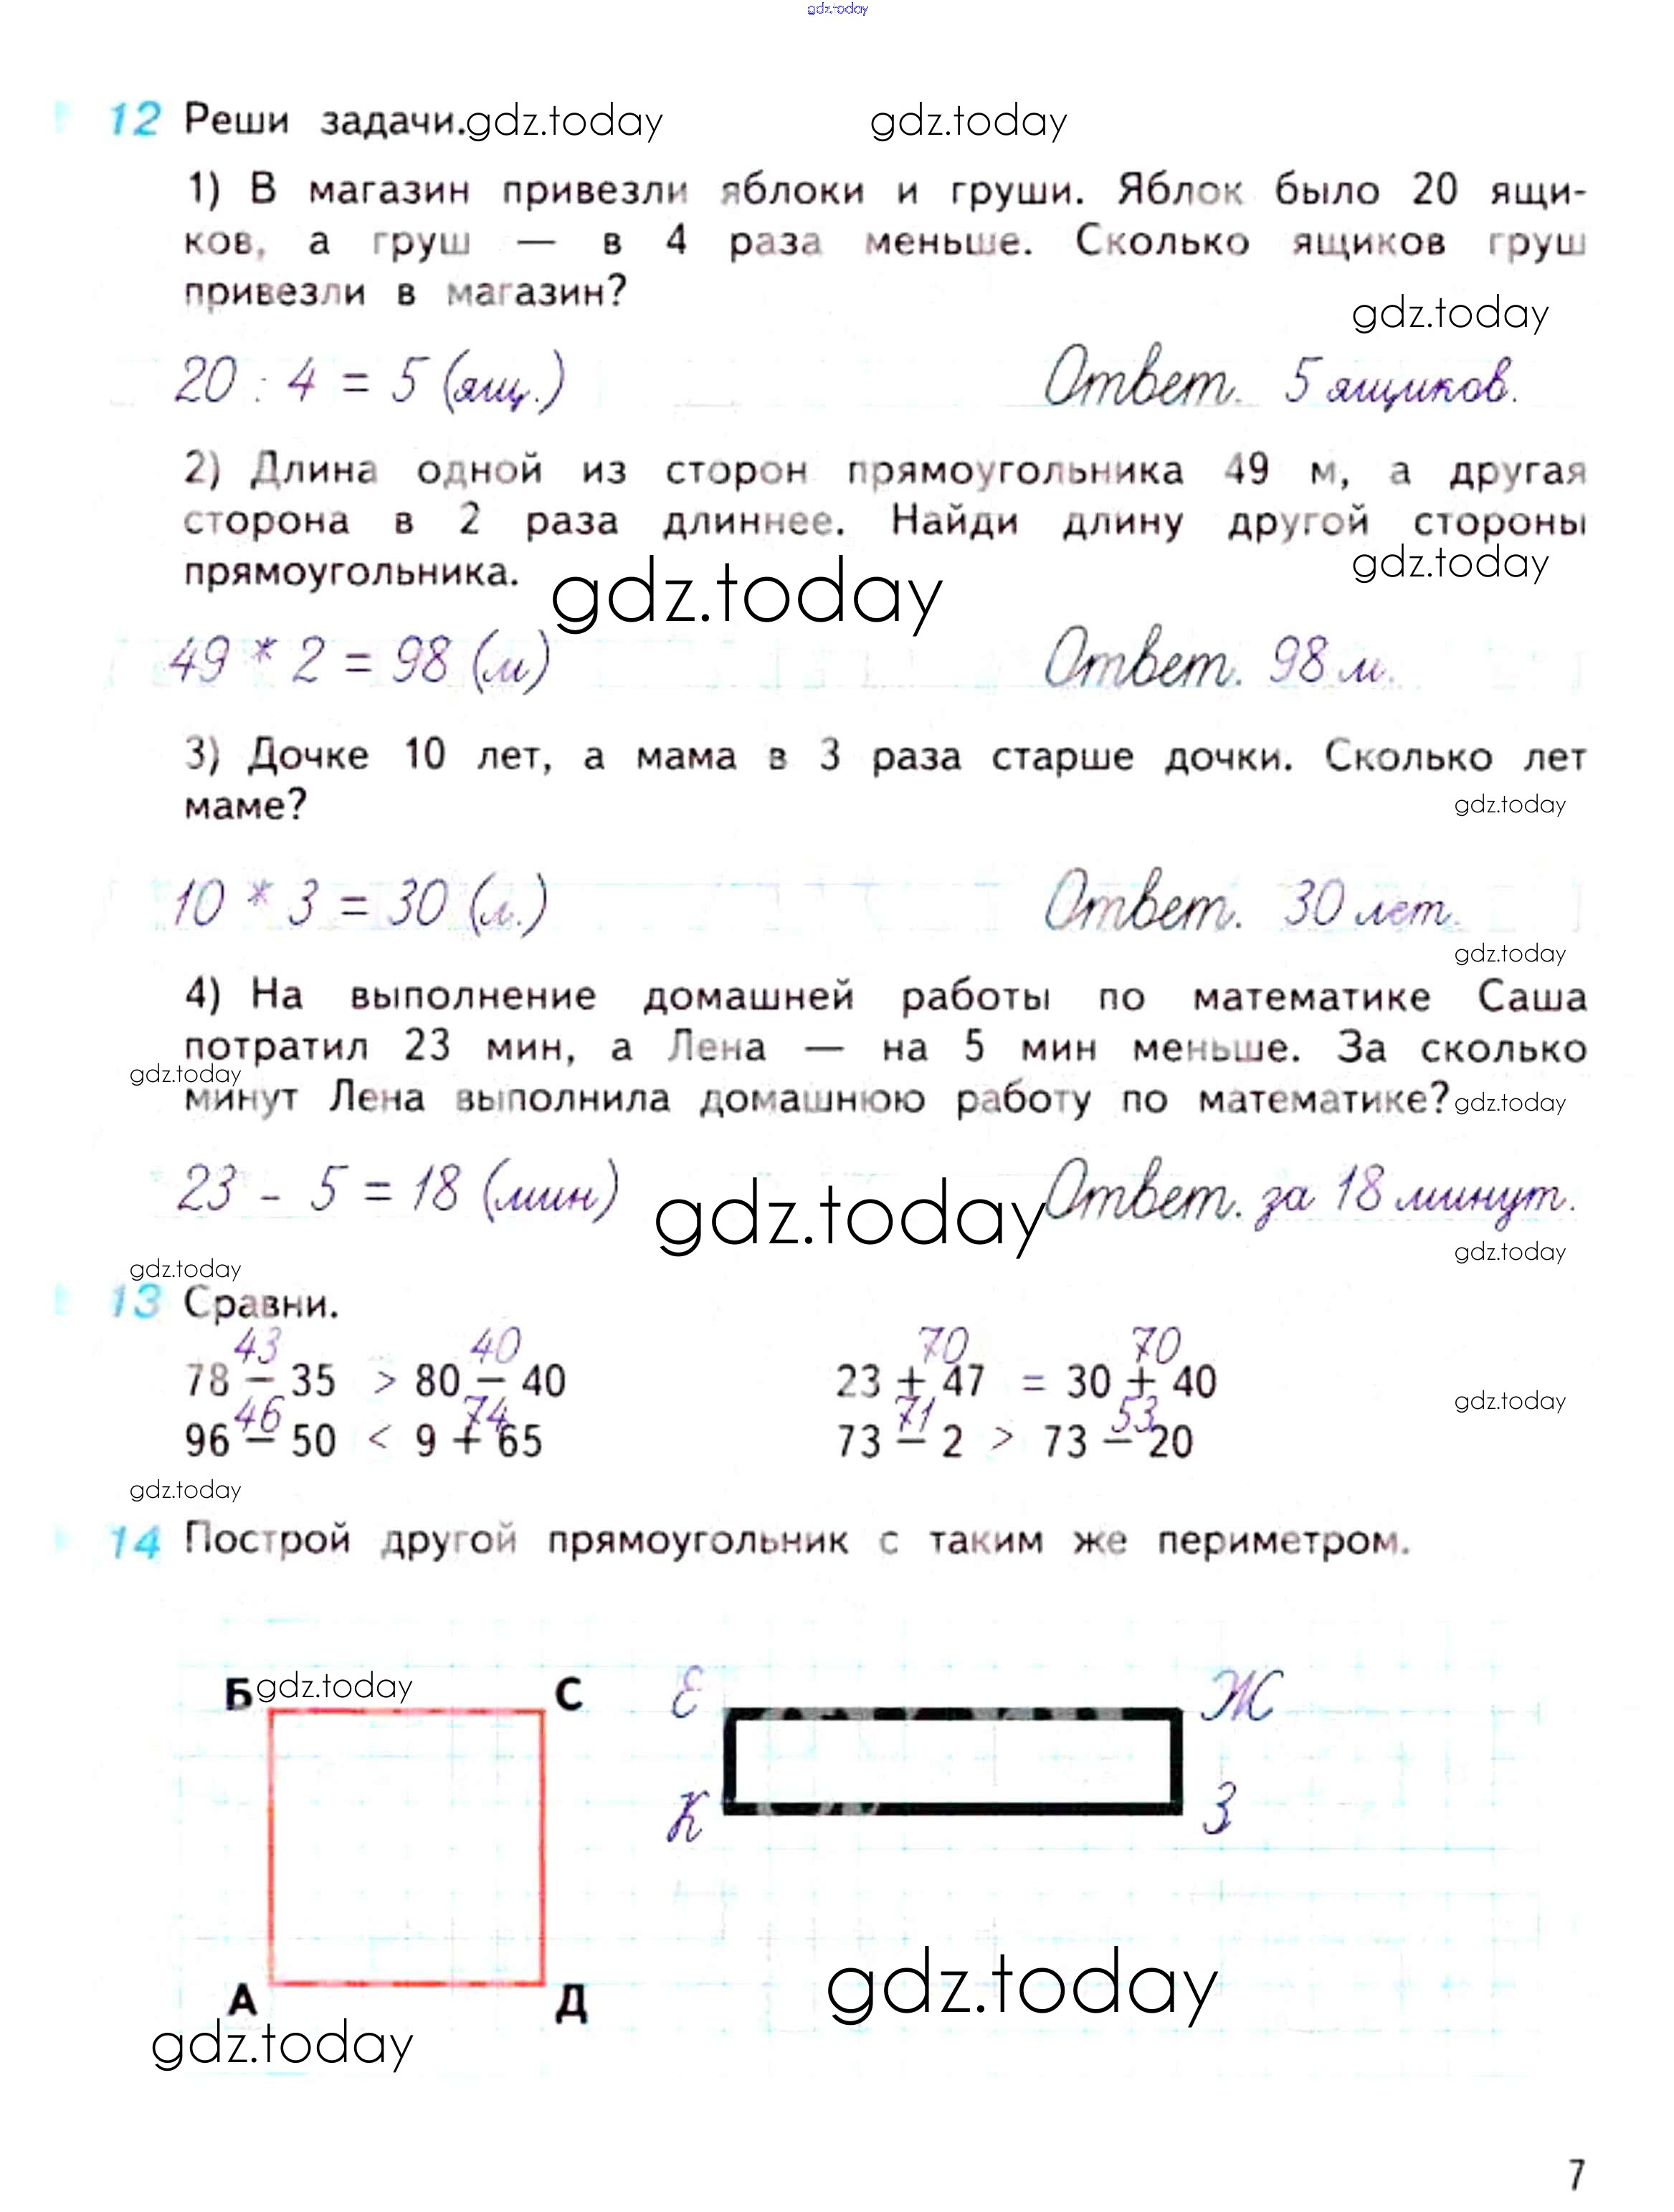 gdz.today
12 Реши задачи. gdz.today gdz.today
1) В магазин привезли яблоки и груши. Яблок было 20 ящи-
ков, а груш — в 4 раза меньше. Сколько ящиков груш
привезли в магазин?
gdz.today
20 : 4 = 5 (ящ.) Ответ. 5 ящиков.
2) Длина одной из сторон прямоугольника 49 м, а другая
сторона в 2 раза длиннее. Найди длину другой стороны
прямоугольника. gdz.today gdz.today
49 * 2 = 98 (м) Ответ. 98 м.
3) Дочке 10 лет, а мама в 3 раза старше дочки. Сколько лет
маме? gdz.today
10 * 3 = 30 (л.) Ответ. 30 лет.
gdz.today
4) На выполнение домашней работы по математике Саша
потратил 23 мин, а Лена — на 5 мин меньше. За сколько
gdz.today
минут Лена выполнила домашнюю работу по математике? gdz.today
23 - 5 = 18 (мин) gdz.today Ответ. за 18 минут.
gdz.today gdz.today
13 Сравни.
43 40 70 70
78 — 35 > 80 — 40 23 + 47 = 30 + 40
gdz.today
46 74 71 53
96 — 50 < 9 + 65 73 — 2 > 73 — 20
gdz.today
14 Построй другой прямоугольник с таким же периметром.
Б gdz.today С Е Ж
К З
gdz.today
А Д
gdz.today
7